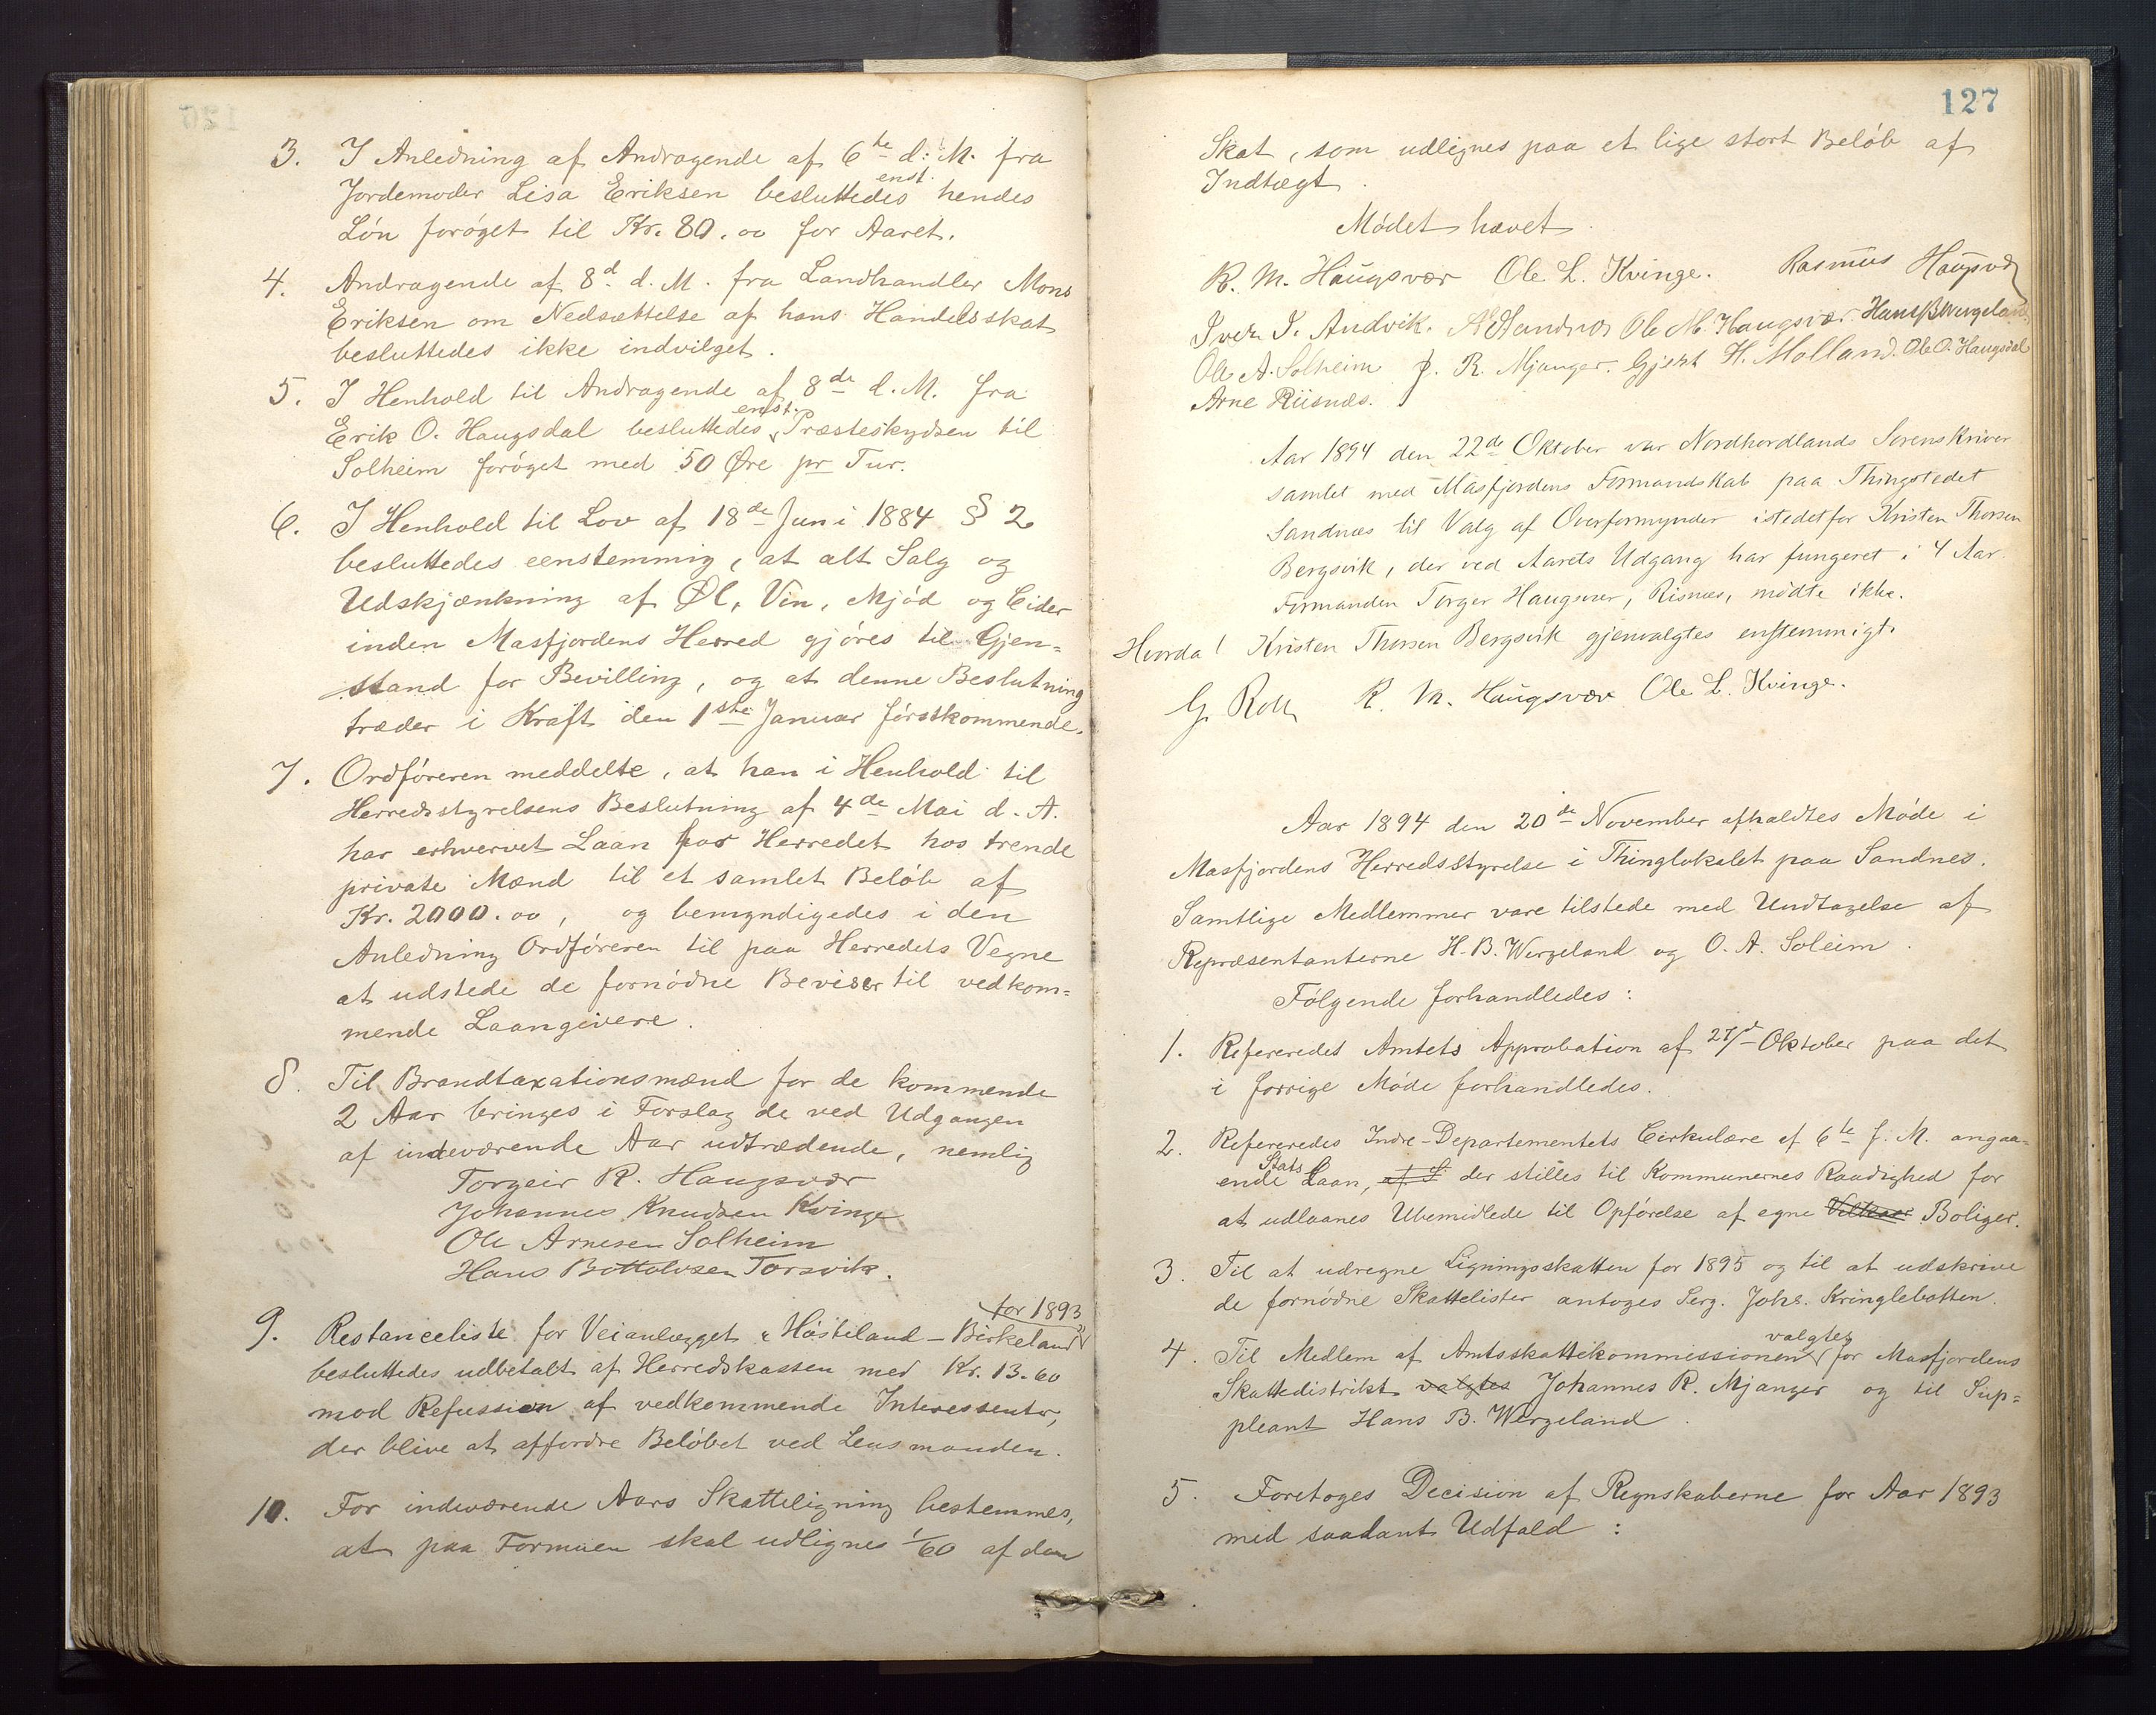 3. I Anledning af Andragende af 6te d. M. fra
Jordemoder Lisa Eriksen besluttedes enst. hendes
Løn forøget til Kr. 80.00 for Aaret.
4. Andragende af 8d d. M. fra Landhandler Mons
Eriksen om Nedsættelse af hans Handelsskat
besluttedes ikke indvilget.
5. I Henhold til Andragende af 8de d. M. fra
Erik O. Haugsdal besluttedes enst. Præsteskydsen til
Solheim forøget med 50 Øre pr Tur.
6. I Henhold til Lov af 18de Juni 1884 § 2
besluttedes eenstemmig, at alt Salg og
Udskjænkning af Øl, Vin, Mjød og Cider
inden Masfjordens Herred gjøres til Gjen=
stand for Bevilling, og at denne Beslutning
træder i Kraft den 1ste Januar førstkommende.
7. Ordføreren meddelte, at han i Henhold til
Herredsstyrelsens Beslutning af 4de Mai d. A.
har erhvervet Laan for Herredet hos trende
private Mænd til et samlet Beløb af
Kr. 2000.00, og bemyndigedes i den
Anledning Ordføreren til paa Herredets Vegne
at udstede de fornødne Beviser til vedkom=
mende Laangivere.
8. Til Brandtaxationsmænd for de kommende
2 Aar bringes i Forslag de ved Udgangen
af indeværende Aar udtrædende, nemlig
Torgeir R. Haugsvær
Johannes Knudsen Kvinge
Ole Arnesen Solheim
Hans Bottolvsen Torsvik.
9. Restanceliste for Veianlægget "Høstiland – Birkeland" for 1893
besluttedes udbetalt af Herredskassen med Kr. 13.60
mod Refusion af vedkommende Interessenter,
der blive at affordre Beløbet ved Lensmanden.
10. For indeværende Aars Skatteligning bestemmes,
at paa Formuen skal udlignes 1/60 af den
127
Skat, som udlignes paa et lige stort Beløb af
Indtægt.
Mødet hævet.
R. M. Haugsvær Ole L. Kvinge. Rasmus Haugsvær
Iver I. Andvik. A Sandnes Ole M. Haugsvær. Hans B Wergeland.
Ole A. Solheim J. R. Mjanger. Gjert H. Molland. Ole O. Haugsdal
Arne Riisnes.
Aar 1894 den 22de Oktober var Nordhordlands Sorenskriver
samlet med Masfjordens Formandskab paa Thingstedet
Sandnæs til Valg af Overformynder istedetfor Kristen Thorsen
Bergsvik, der ved Aarets Udgang har fungeret i 4 Aar.
Formanden Torger Haugsver, Risnæs, mødte ikke.
Kristen Thorsen Bergsvik gjenvalgtes enstemmigt.
R. M. Haugsvær Ole L. Kvinge.
Aar 1894 den 20de November afholdtes Møde i
Masfjordens Herredsstyrelse i Thinglokalet paa Sandnes.
Samtlige Medlemmer vare tilstede med Undtagelse af
Repræsentanterne H. B. Wergeland og O. A. Soleim.
Følgende forhandledes:
1. Refereredes Amtets Approbation af 27/d Oktober paa det
i forrige Møde forhandledes.
2. Refereredes Indre-Departementets Cirkulære af 6te f. M. angaa=
ende Stats Laan, af S der stilles til Kommunernes Raadighed for
at udlaanes Ubemidlede til Opførelse af egne Vilkaar Boliger.
3. Til at udregne Ligningsskatten for 1895 og til at udskrive
de fornødne Skattelister antoges Serg. Johs. Kringlebotten.
4. Til Medlem af Amtsskattekommissionen valgtes for Masfjordens
Skattedistrikt valgtes Johannes R. Mjanger og til Sup=
pleant Hans B. Wergeland.
5. Foretoges Decision af Regnskaberne for Aar 1893
med saadant Udfald: